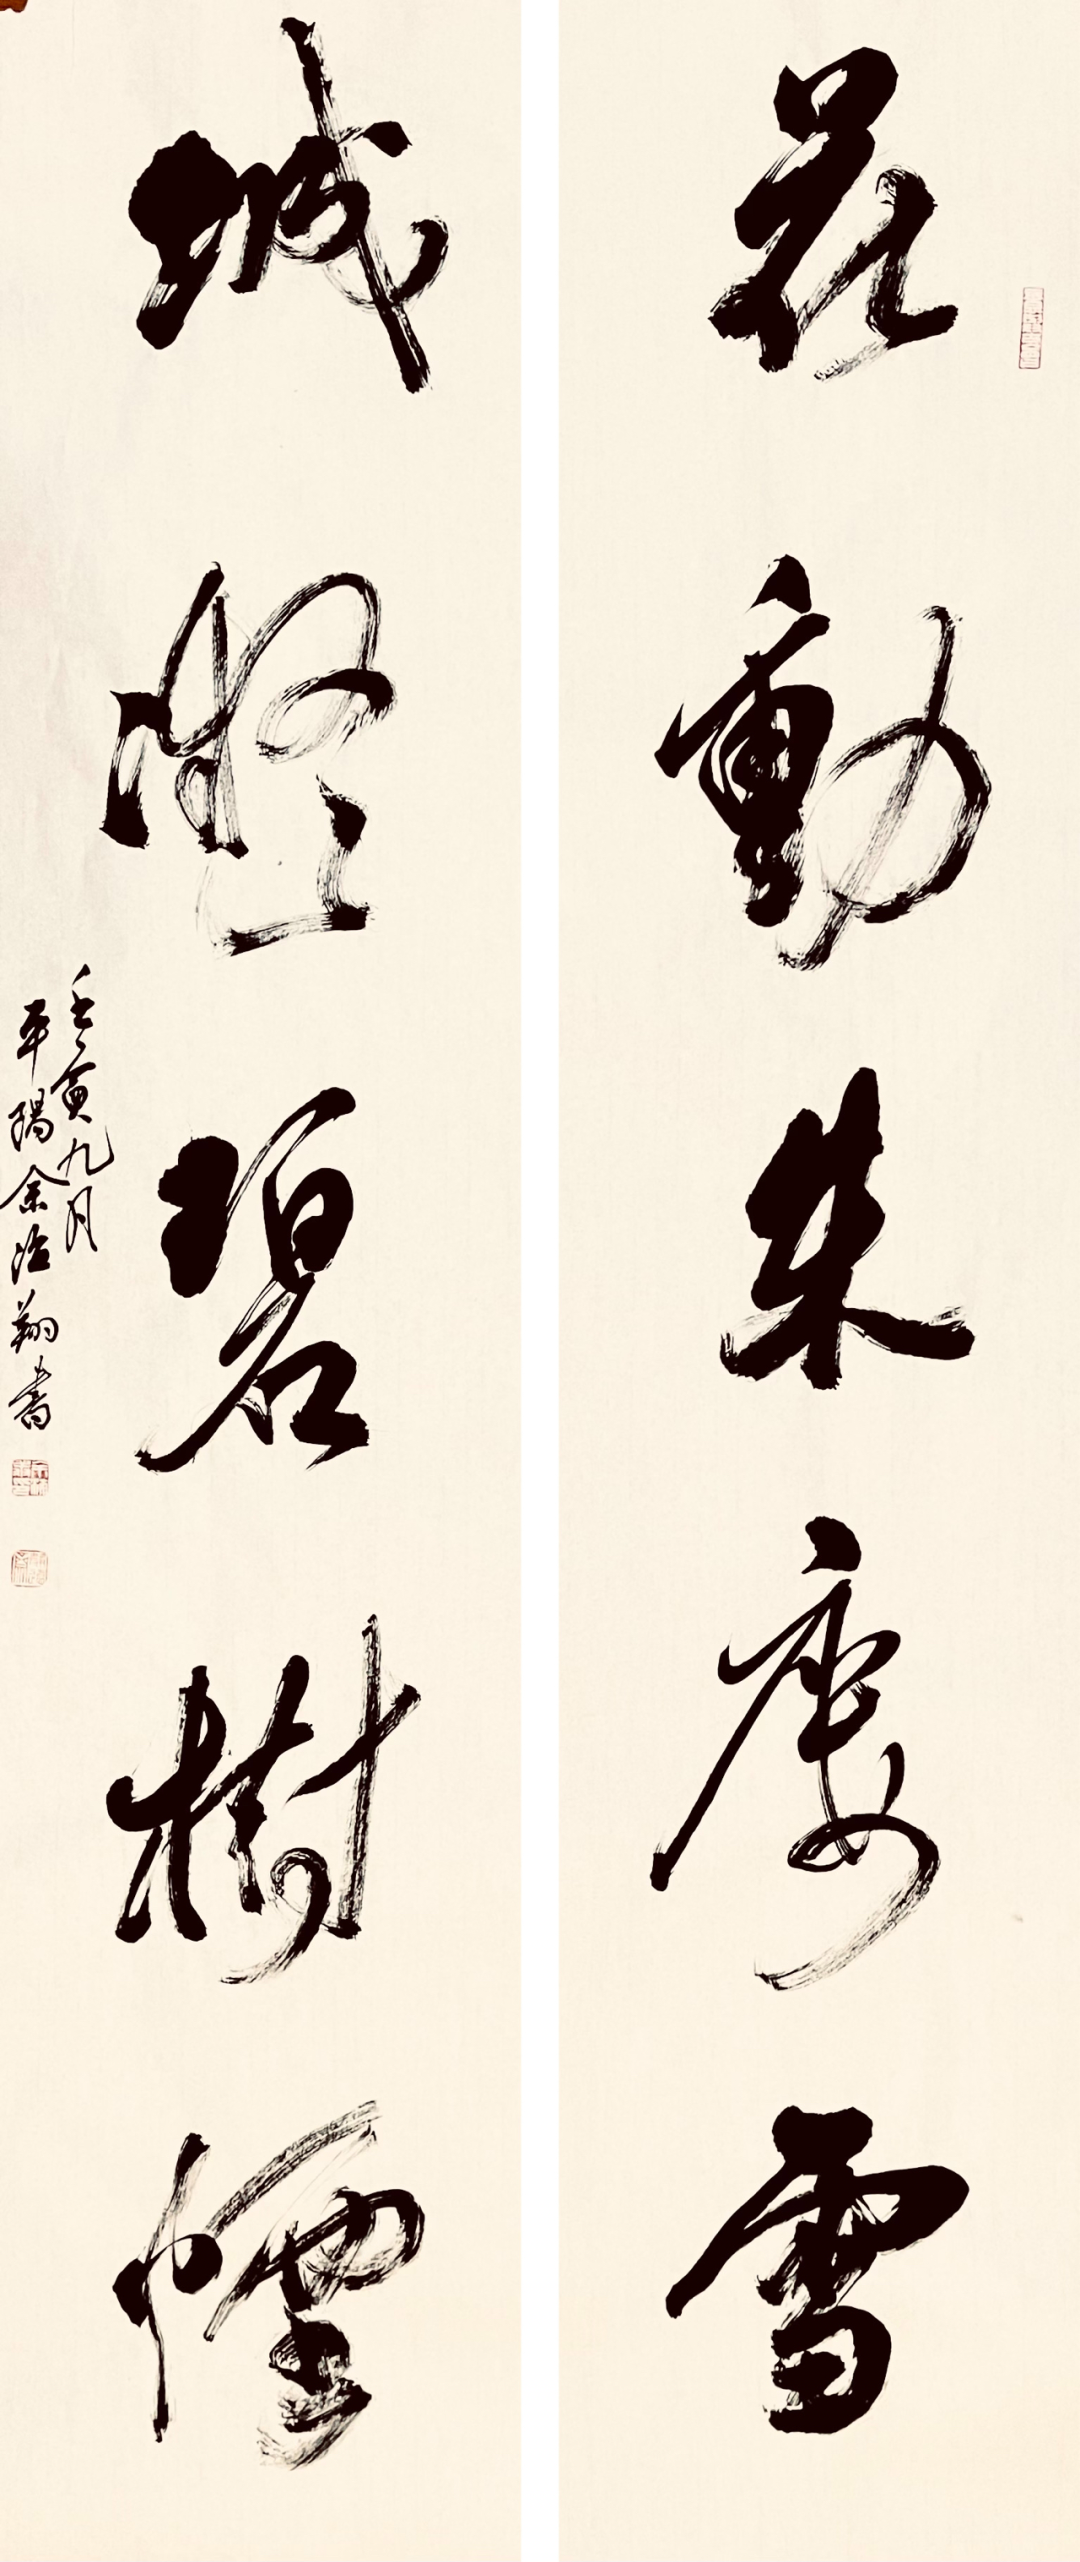 花動朱廔雪
城凝碧樹煙
壬寅九月
平陽余治翔書